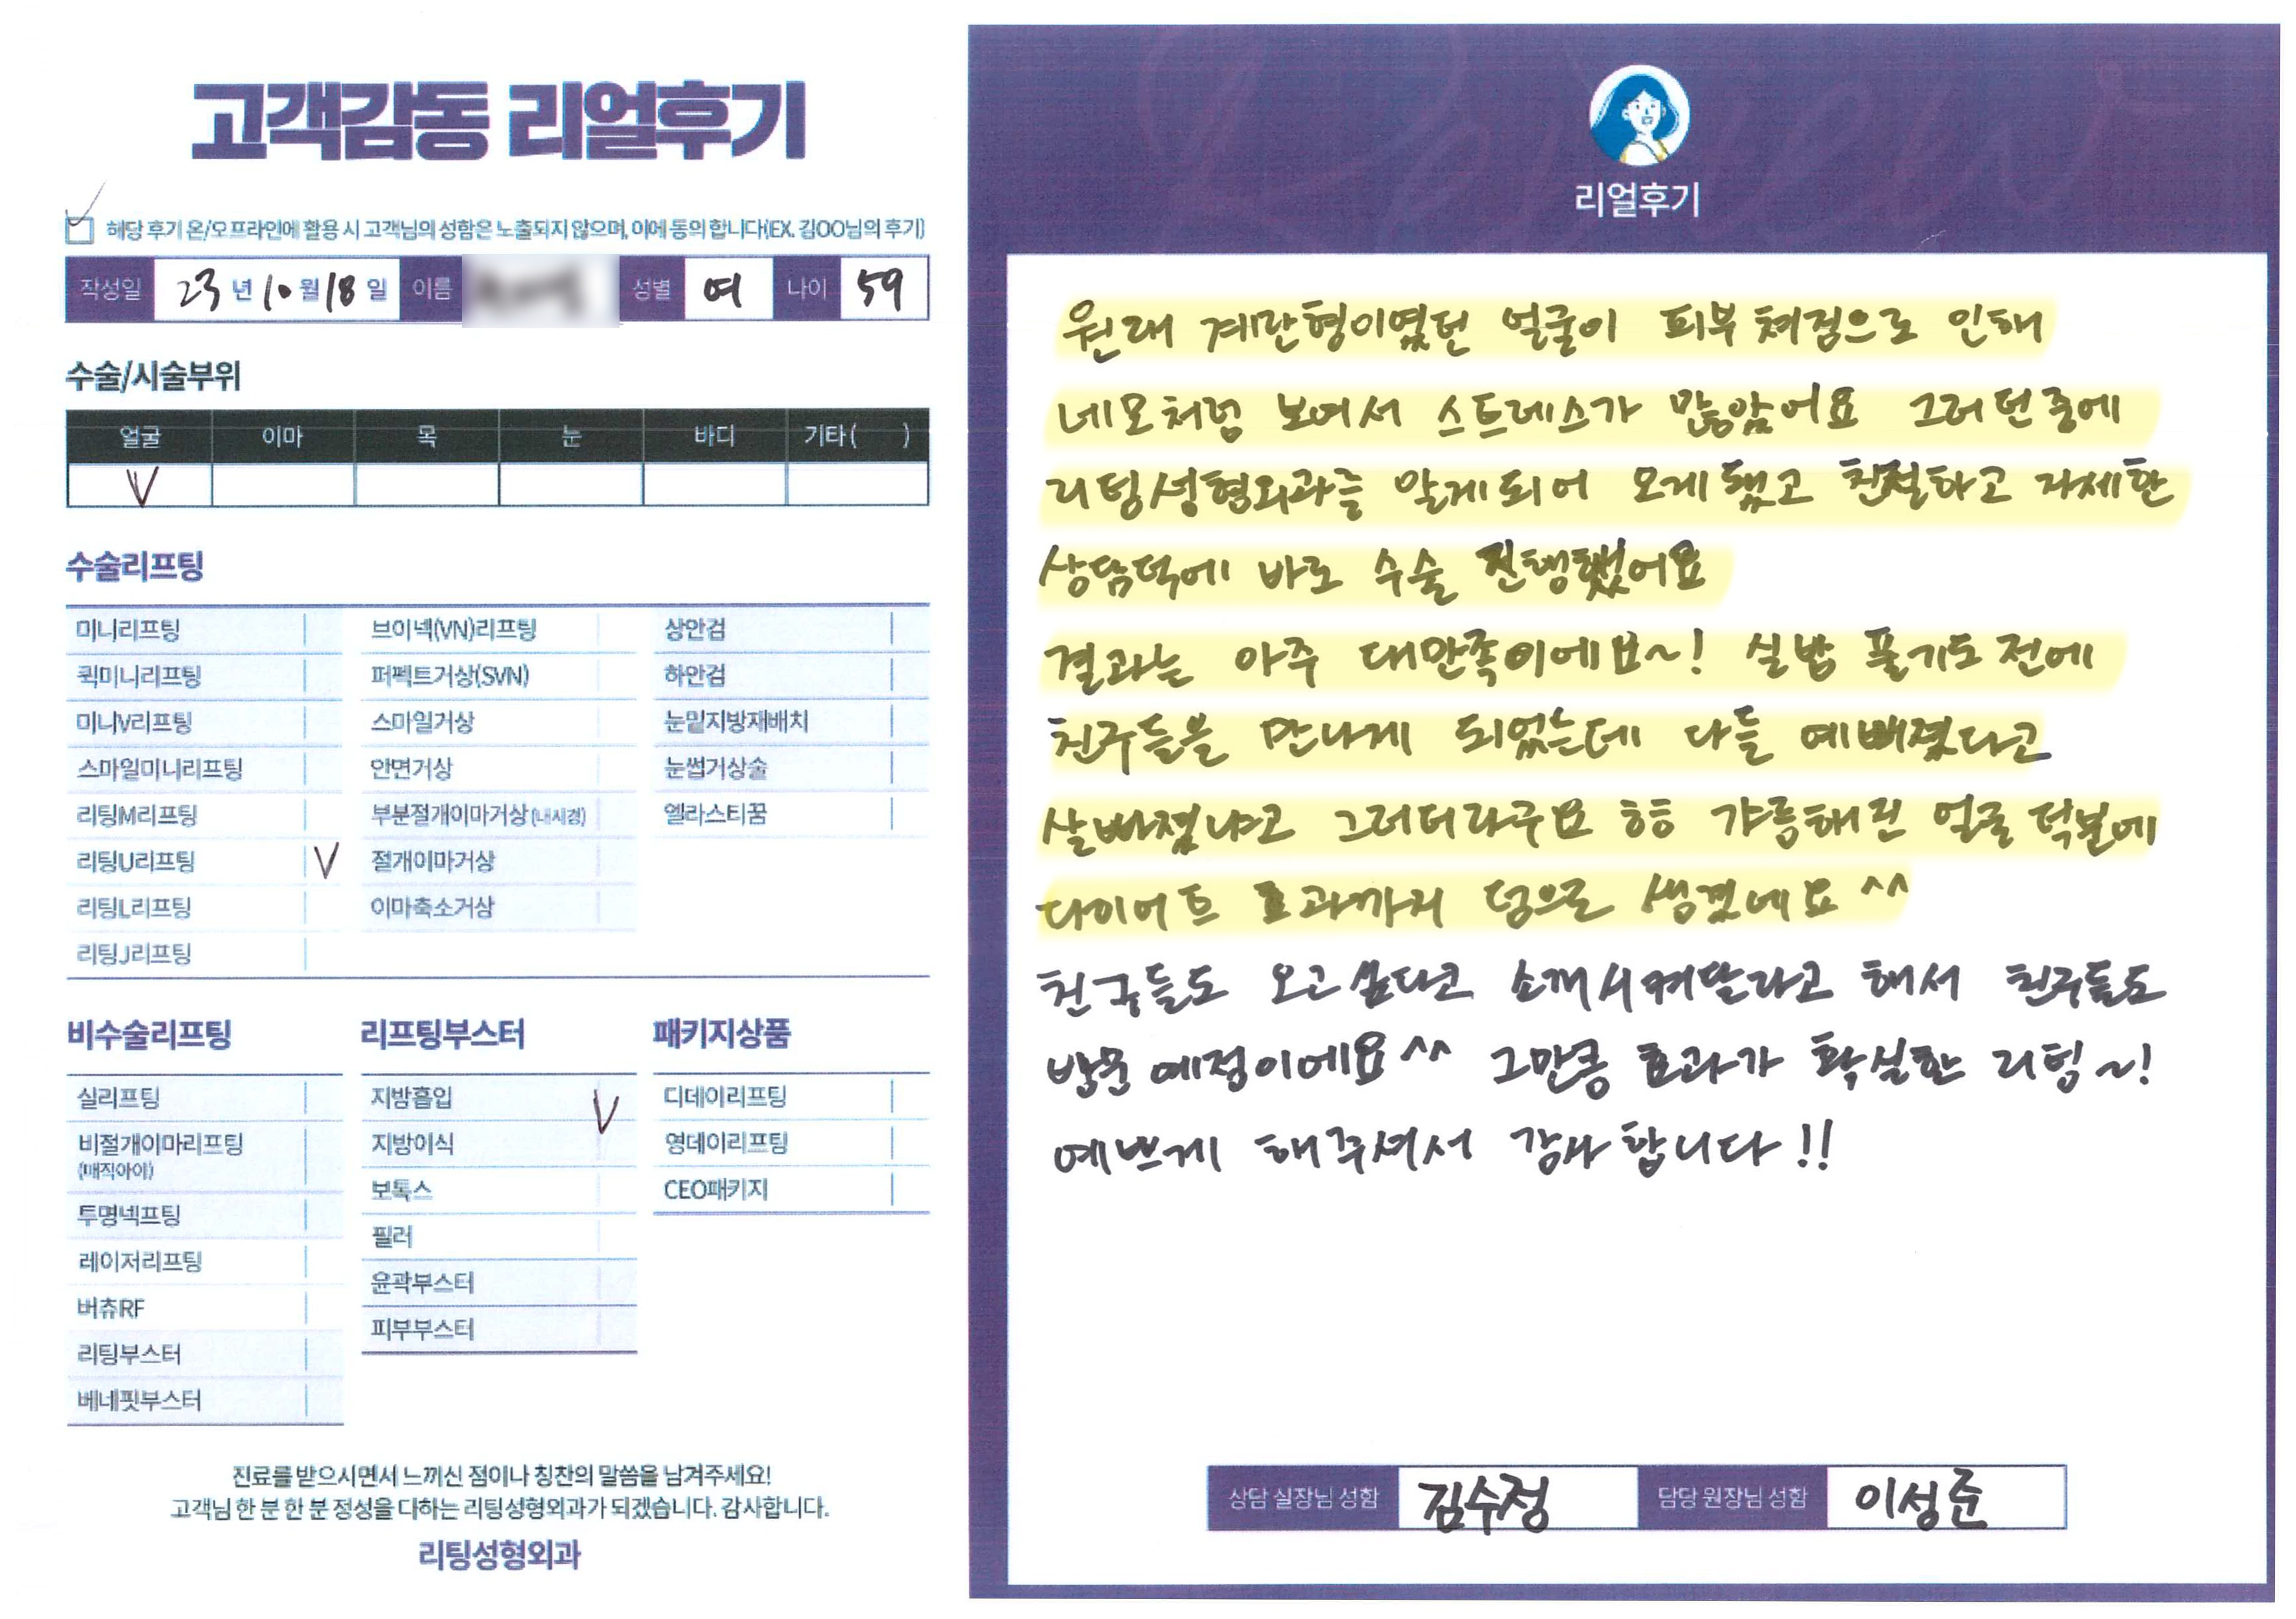 고객감동 리얼후기
해당 후기 온/오프라인에 활용 시 고객님의 성함은 노출되지 않으며, 이에 동의 합니다(EX. 김OO님의 후기)
작성일 23년 10월 18일 이름 성별 여 나이 59
수술/시술부위
얼굴 이마 목 눈 바디 기타( )
V
수술리프팅
미니리프팅 브이넥(VN)리프팅 상안검
퀵미니리프팅 퍼펙트거상(SVN) 하안검
미니V리프팅 스마일거상 눈밑지방재배치
스마일미니리프팅 안면거상 눈썹거상술
리팅M리프팅 부분절개이마거상(내시경) 엘라스티꿈
리팅U리프팅 V 절개이마거상
리팅L리프팅 이마축소거상
리팅J리프팅
비수술리프팅 리프팅부스터 패키지상품
실리프팅 지방흡입 V 디데이리프팅
비절개이마리프팅 지방이식 영데이리프팅
(매직아이)
보톡스 CEO패키지
투명넥프팅 필러
레이저리프팅 윤곽부스터
버츄RF 피부부스터
리팅부스터
베네핏부스터
진료를 받으시면서 느끼신 점이나 칭찬의 말씀을 남겨주세요!
고객님 한 분 한 분 정성을 다하는 리팅성형외과가 되겠습니다. 감사합니다.
리팅성형외과
리얼후기
원래 계란형이였던 얼굴이 피부 쳐짐으로 인해
네모처럼 보여서 스트레스가 많았어요 그러던중에
리팅성형외과를 알게되어 오게됐고 친절하고 자세한
상담덕에 바로 수술 진행했어요
결과는 아주 대만족이에요~! 실밥 풀기도 전에
친구들을 만나게 되었는데 다들 예뻐졌다고
살빠졌냐고 그러더라구요 ㅎㅎ 갸름해진 얼굴 덕분에
다이어트 효과까지 덤으로 생겼네요 ^^
친구들도 오고싶다고 소개시켜달라고 해서 친구들도
방문 예정이에요^^ 그만큼 효과가 확실한 리팅~!
예쁘게 해주셔서 감사합니다!!
상담 실장님 성함 김수정 담당 원장님 성함 이성준